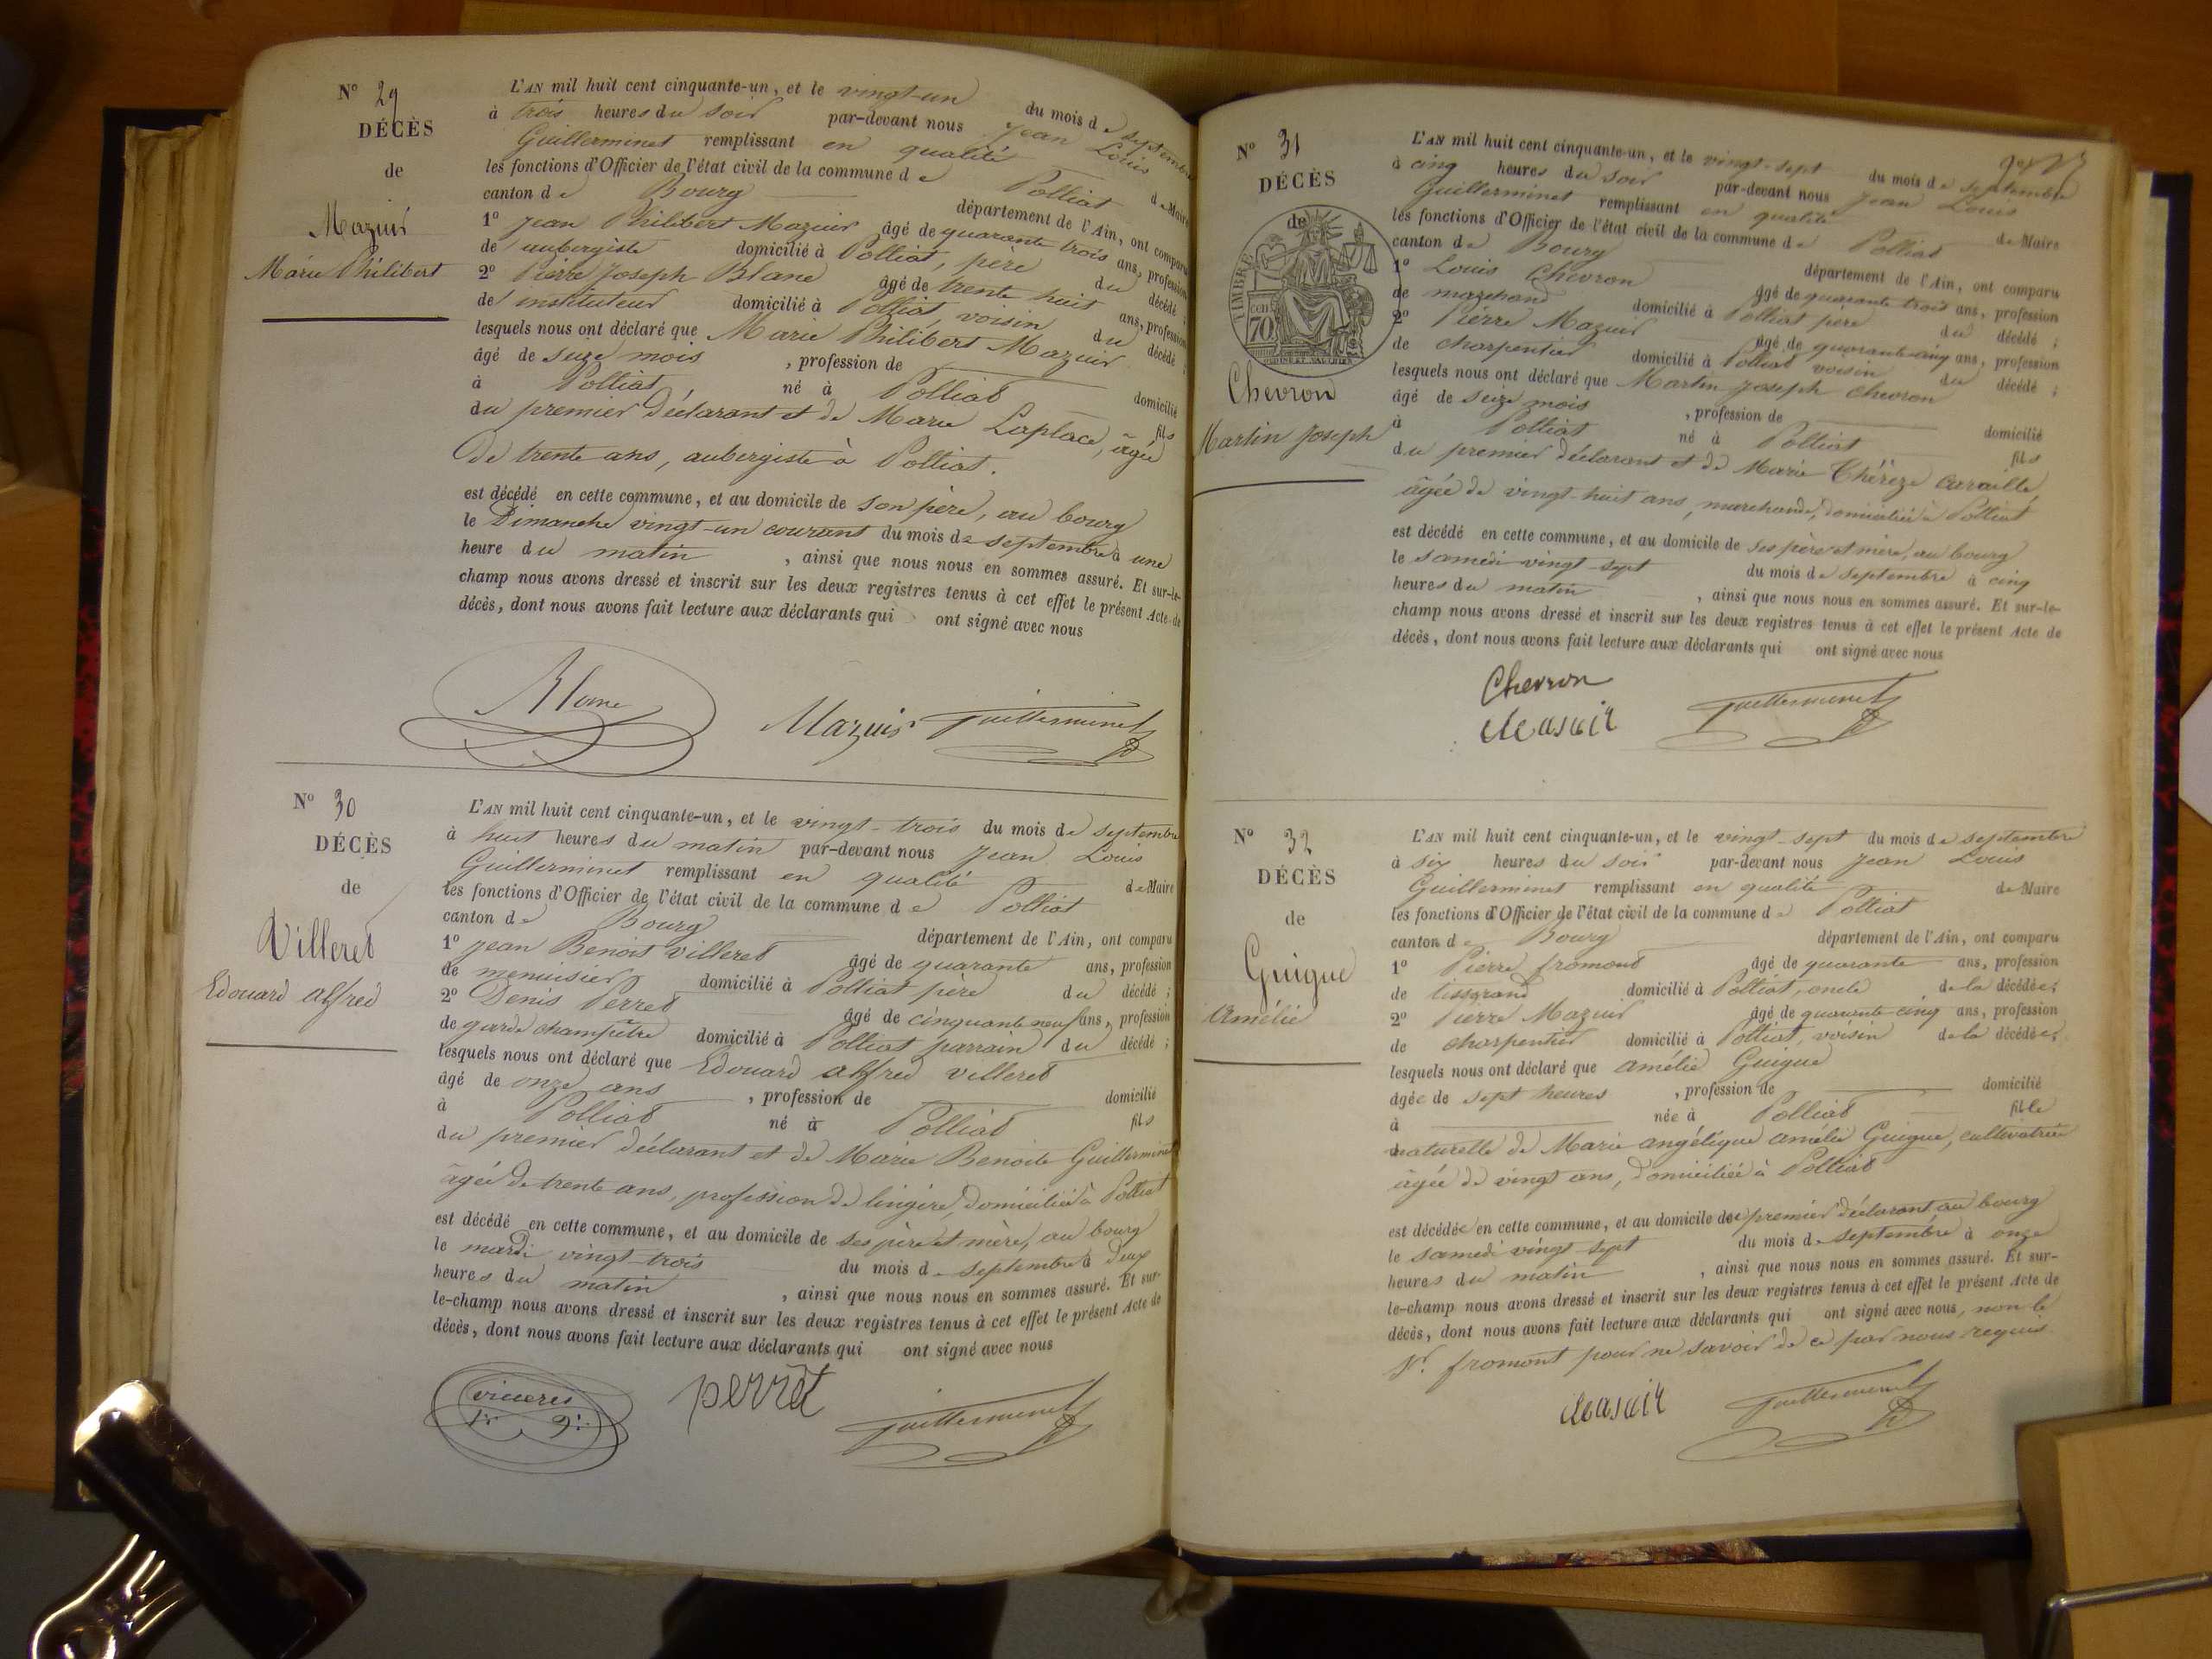 N° 29
DÉCÈS
de
Mazuir
Marie Philibert
L'AN mil huit cent cinquante-un, et le vingt-un du mois de septembre
à trois heures du soir par-devant nous Jean Louis
Guillerminet remplissant en qualité de Maire
les fonctions d'Officier de l'état civil de la commune de Polliat
canton de Bourg département de l'Ain, ont comparu
1° Jean Philibert Mazuir âgé de quarante trois ans, profession
de aubergiste domicilié à Polliat, père du décédé ;
2° Pierre Joseph Blanc âgé de trente huit ans, profession
de instituteur domicilié à Polliat, voisin du décédé ;
lesquels nous ont déclaré que Marie Philibert Mazuir
âgé de seize mois , profession de domicilié
à Polliat, né à Polliat fils
du premier déclarant et de Marie Laplace, âgée
de trente ans, aubergiste à Polliat.
est décédé en cette commune, et au domicile de son père, au bourg
le Dimanche vingt-un courant du mois de septembre à une
heure du matin , ainsi que nous nous en sommes assuré. Et sur-le-
champ nous avons dressé et inscrit sur les deux registres tenus à cet effet le présent Acte de
décès, dont nous avons fait lecture aux déclarants qui ont signé avec nous
Blanc Mazuir Guillerminet
N° 30
DÉCÈS
de
Villeret
Edouard alfred
L'AN mil huit cent cinquante-un, et le vingt-trois du mois de septembre
à huit heures du matin par-devant nous Jean Louis
Guillerminet remplissant en qualité de Maire
les fonctions d'Officier de l'état civil de la commune de Polliat
canton de Bourg département de l'Ain, ont comparu
1° Jean Benoit Villeret âgé de quarante ans, profession
de menuisier domicilié à Polliat père du décédé ;
2° Denis Perret âgé de cinquante neuf ans, profession
de garde champêtre domicilié à Polliat parrain du décédé ;
lesquels nous ont déclaré que Edouard alfred villeret
âgé de onze ans , profession de domicilié
à Polliat né à Polliat fils
du premier déclarant et de Marie Benoite Guillerminet
âgée de trente ans, profession de lingère, domiciliée à Polliat
est décédé en cette commune, et au domicile de ses père et mère, au bourg
le mardi vingt-trois du mois de septembre à deux
heures du matin , ainsi que nous nous en sommes assuré. Et sur-
le-champ nous avons dressé et inscrit sur les deux registres tenus à cet effet le présent Acte de
décès, dont nous avons fait lecture aux déclarants qui ont signé avec nous
perrêt Guillerminet
N° 31
DÉCÈS
de
TIMBRE
CEN
70
Chevron
Martin Joseph
L'AN mil huit cent cinquante-un, et le vingt-sept du mois de septembre
à cinq heures du soir par-devant nous Jean Louis
Guillerminet remplissant en qualité de Maire
les fonctions d'Officier de l'état civil de la commune de Polliat
canton de Bourg département de l'Ain, ont comparu
1° Louis Chevron âgé de quarante trois ans, profession
de marchand domicilié à Polliat père du décédé ;
2° Pierre Mazuir âgé de quarante-cinq ans, profession
de charpentier domicilié à Polliat voisin du décédé ;
lesquels nous ont déclaré que Martin Joseph Chevron
âgé de seize mois , profession de domicilié
à Polliat né à Polliat fils
du premier déclarant et de Marie Thérèze
âgée de vingt-huit ans, marchande, domiciliée à Polliat
est décédé en cette commune, et au domicile de ses père et mère, au bourg
le samedi vingt-sept du mois de septembre à cinq
heures du matin , ainsi que nous nous en sommes assuré. Et sur-le-
champ nous avons dressé et inscrit sur les deux registres tenus à cet effet le présent Acte de
décès, dont nous avons fait lecture aux déclarants qui ont signé avec nous
Chevron
Masuir Guillerminet
N° 32
DÉCÈS
de
Guigue
Amélie
L'AN mil huit cent cinquante-un, et le vingt-sept du mois de septembre
à six heures du soir par-devant nous Jean Louis
Guillerminet remplissant en qualité de Maire
les fonctions d'Officier de l'état civil de la commune de Polliat
canton de Bourg département de l'Ain, ont comparu
1° Pierre fromont âgé de quarante ans, profession
de tisserand domicilié à Polliat, oncle de la décédée ;
2° Pierre Mazuir âgé de quarante cinq ans, profession
de charpentier domicilié à Polliat, voisin de la décédée ;
lesquels nous ont déclaré que amélie Guigue
âgée de sept heures , profession de domicilié
à née à Polliat fille
naturelle de Marie angélique amélie Guigue, cultivatrice
âgée de vingt ans, domiciliée à Polliat
est décédée en cette commune, et au domicile du premier déclarant, au bourg
le samedi vingt-sept du mois de septembre à onze
heures du matin , ainsi que nous nous en sommes assuré. Et sur-
le-champ nous avons dressé et inscrit sur les deux registres tenus à cet effet le présent Acte de
décès, dont nous avons fait lecture aux déclarants qui ont signé avec nous, non le
Sr. fromont pour ne savoir de ce par nous requis
Masuir Guillerminet